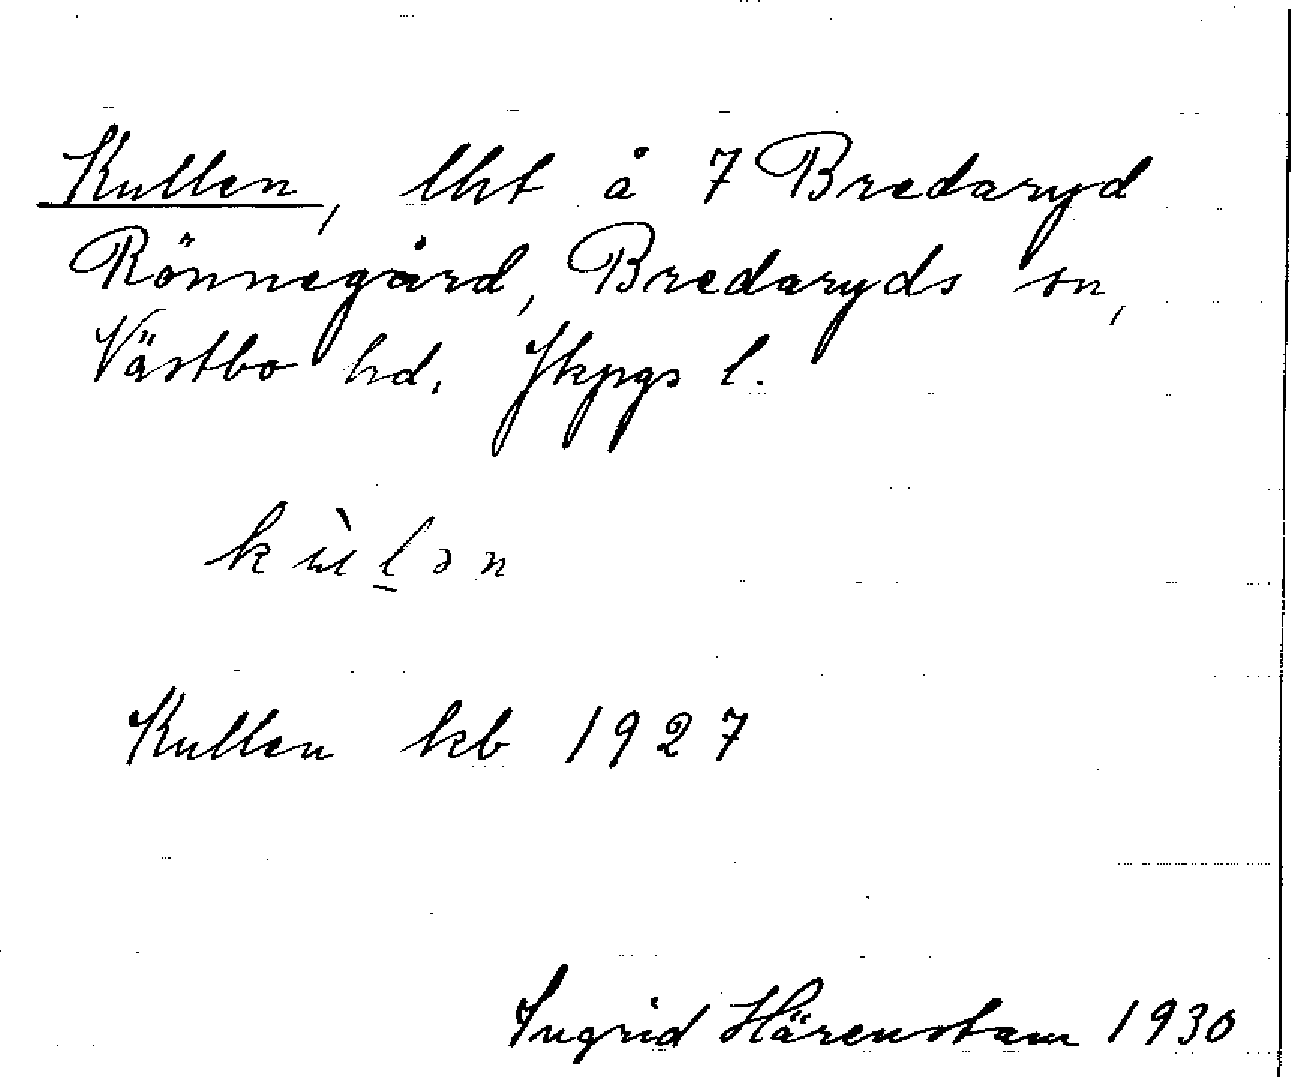 Kullen, lht å 7 Bredaryd
Rönnegård, Bredaryds sn,
Västbo hd. Jkpgs l.
kùl̲ən
Kullen kb 1927
Ingrid Härenstam 1930